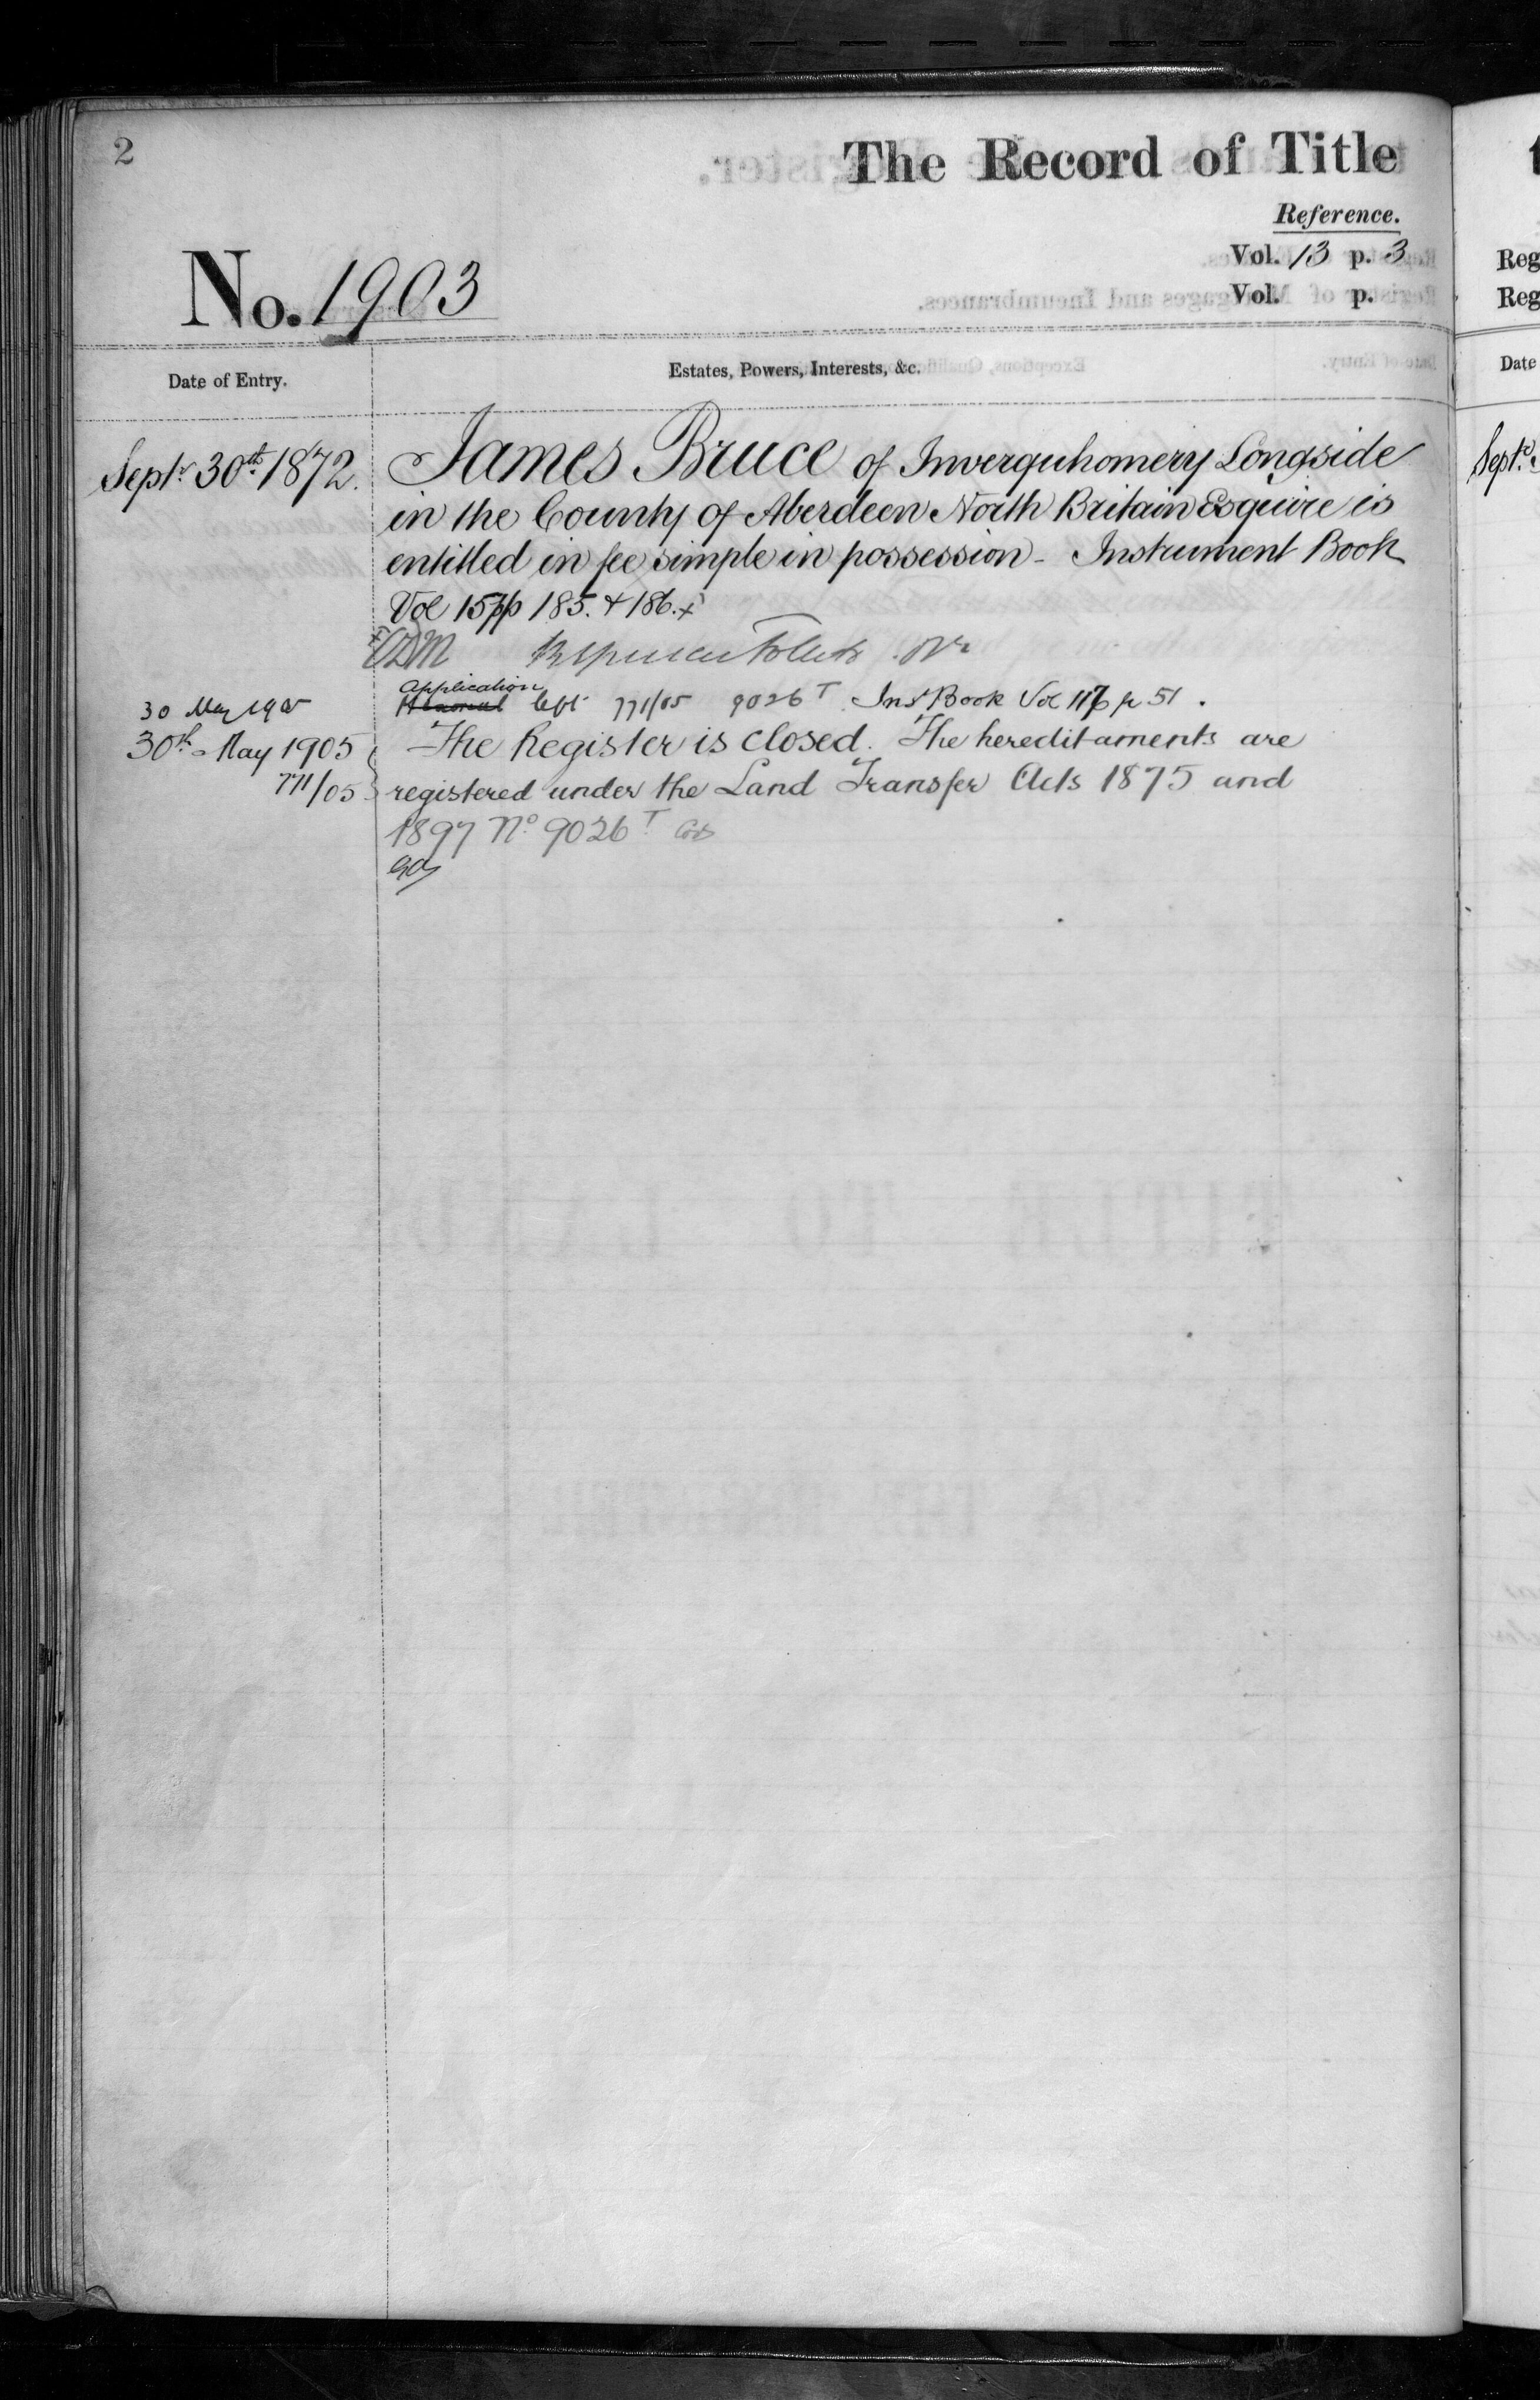 2
The Record of Title
Reference.
Vol. 13 p. 3
Vol. p.
No. 1903
Date of Entry.
Estates, Powers, Interests, &c.
Septr 30th 1872.
James Bruce of Inverquhomery Longside
in the County of Aberdeen North Britain Esquire is
entitled in fee simple in possession - Instrument Book
Vol 15 pp 185. & 186. x
30 May 1905
Application
left 771/05 9026 T Inst Book Vol 117 p 51.
30th May 1905
771/05
The Register is closed. The hereditaments are
registered under the Land Transfer Acts 1875 and
1897 No 9026 T
Reg
Reg
Date
Septr